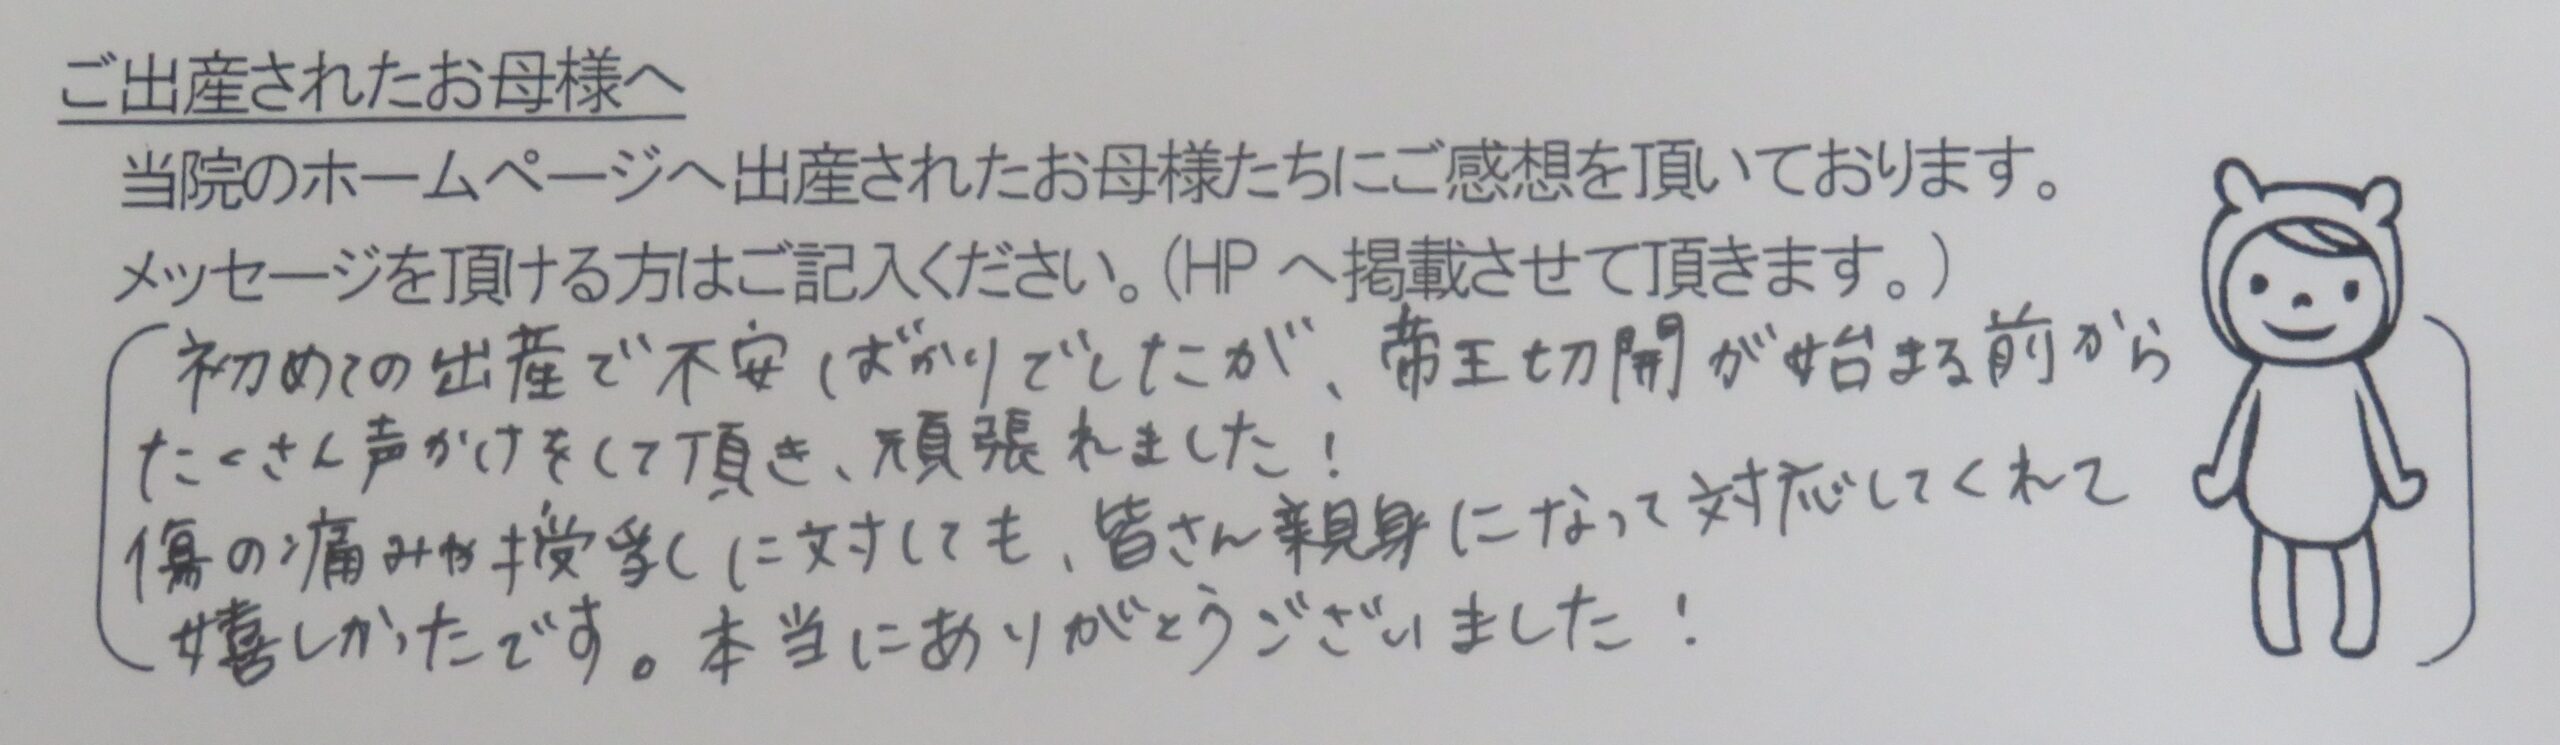 ご出産されたお母様へ
当院のホームページへ出産されたお母様たちにご感想を頂いております。
メッセージを頂ける方はご記入ください。(HPへ掲載させて頂きます。)
初めての出産で不安ばかりでしたが、帝王切開が始まる前から
たくさん声かけをして頂き、頑張れました!
傷の痛みや授乳に対しても、皆さん親身になって対応してくれて
嬉しかったです。本当にありがとうございました!